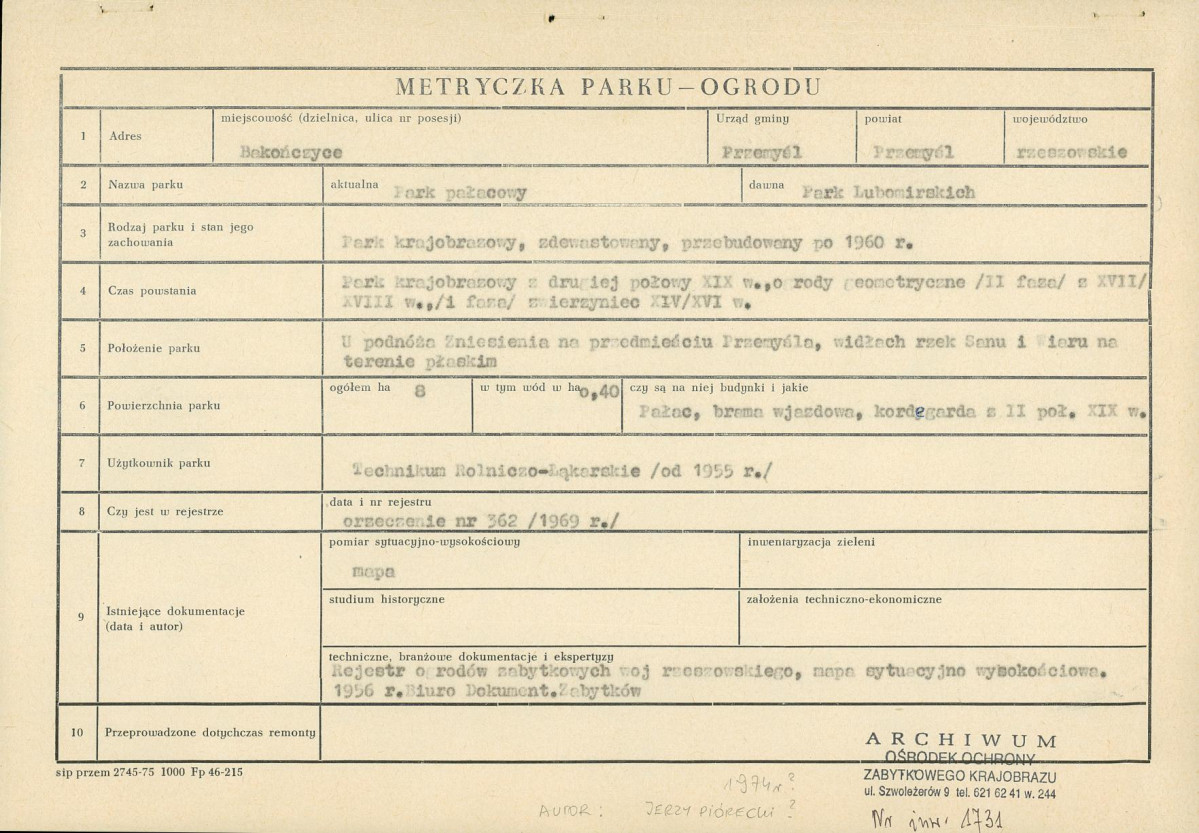 METRYCZKA PARKU – OGRODU
1 Adres
miejscowość (dzielnica, ulica nr posesji)
Bakończyce
Urząd gminy
Przemyśl
powiat
Przemyśl
województwo
rzeszowskie
2 Nazwa parku
aktualna Park pałacowy
dawna Park Lubomirskich
3 Rodzaj parku i stan jego
zachowania
Park krajobrazowy, zdewastowany, przebudowany po 1960 r.
4 Czas powstania
Park krajobrazowy z drugiej połowy XIX w.,ogrody geometryczne /II faza/ z XVII/
XVIII w.,/i faza/ zwierzyniec XIV/XVI w.
5 Położenie parku
U podnóża Zniesienia na przedmieściu Przemyśla, widłach rzek Sanu i Wiaru na
terenie płaskim
6 Powierzchnia parku
ogółem ha 8
w tym wód w ha 0,40
czy są na niej budynki i jakie
Pałac, brama wjazdowa, kordegarda z II poł. XIX w.
7 Użytkownik parku
Technikum Rolniczo-Łąkarskie /od 1955 r./
8 Czy jest w rejestrze
data i nr rejestru
orzeczenie nr 362 /1969 r./
9 Istniejące dokumentacje
(data i autor)
pomiar sytuacyjno-wysokościowy
mapa
inwentaryzacja zieleni
studium historyczne
założenia techniczno-ekonomiczne
techniczne, branżowe dokumentacje i ekspertyzy
Rejestr ogrodów zabytkowych woj rzeszowskiego, mapa sytuacyjno wysokościowa.
1956 r.Biuro Dokument.Zabytków
10 Przeprowadzone dotychczas remonty
sip przem 2745-75 1000 Fp 46-215
ARCHIWUM
OŚRODEK OCHRONY
ZABYTKOWEGO KRAJOBRAZU
ul. Szwoleżerów 9 tel. 621 62 41 w. 244
Nr inw. 1731
1974r?
AUTOR: JERZY PIÓRECKI ?